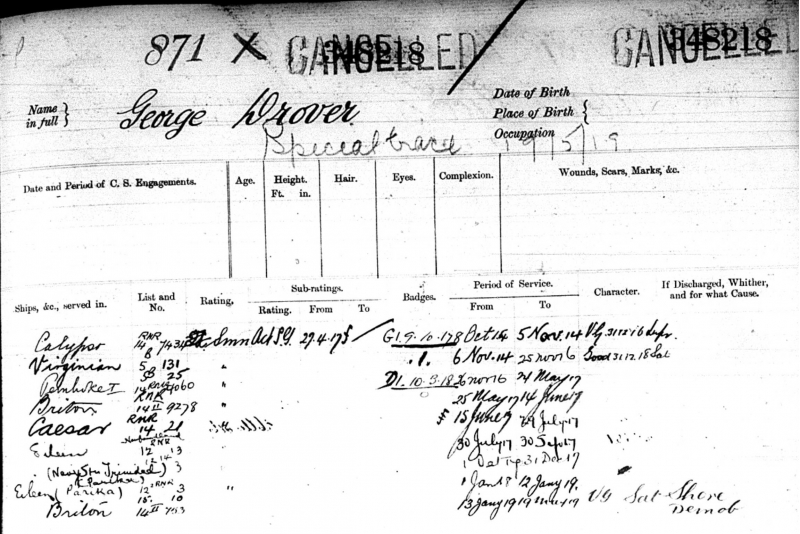 871 X CANCELLED 348218 CANCELLED 348218
Name in full } George Drover
Date of Birth
Place of Birth }
Occupation
Special trace 19/5/19
Date and Period of C. S. Engagements. Age. Height. Ft. in. Hair. Eyes. Complexion. Wounds, Scars, Marks, &c.
Ships, &c., served in. List and No. Rating. Sub-ratings. Rating. From To Badges. Period of Service. From To Character. If Discharged, Whither, and for what Cause.
Calypso RNR 14 8 7434 Smn 27.4.17 G1. 9.10.17 8 Oct 14 5 Nov. 14 VG 31.12.16
Virginian 5 131 " 6 Nov. 14 25 Nov 16 Good 31.12.18 Sat
Pembroke I " D1. 10.3.18 26 Nov 16 24 May 17
Briton RNR 14 II 9278 " 25 May 17 14 June 17
Caesar RNR 14 21 15 June 17 29 July 17
Eileen RNR 12 13 30 July 17 30 Sep 17
(Navy Stn Trinidad) 3 1 Oct 17 31 Dec 17
Eileen (Parika) 12 RNR 3 " 1 Jan 18 12 Jany 19.
Briton 14 II 753 13 Jany 19 19 May 19 VG Sat Shore Demob